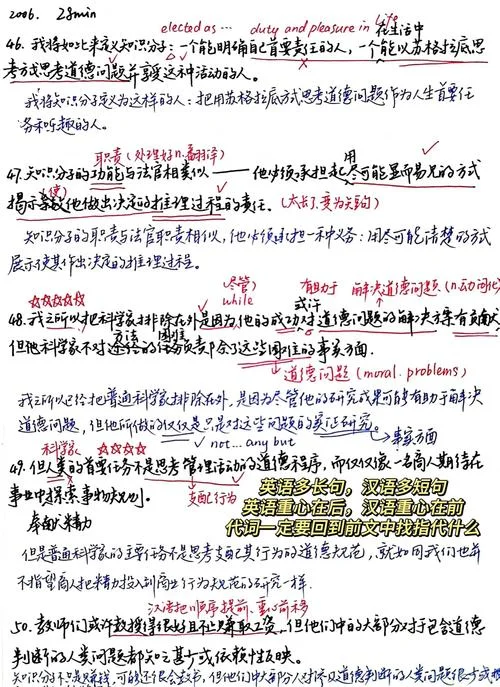 2006. 28min
elected as ... duty and pleasure in life
在生活中
46. 我将如此来定义知识分子：一个能明确自己首要责任的人，一个能以苏格拉底思
考方式思考道德问题并享受这种活动的人。
我将知识分子定义为这样的人：把用苏格拉底方式思考道德问题作为人生首要任
务和乐趣的人。
职责（处理好n.翻译）
用
47. 知识分子的功能与法官相类似——他必须承担起尽可能显而易见的方式
（使）
揭示导致他做出决定的推理过程的责任。（太长了，变为关韵）
知识分子的职责与法官职责相似，他必须承担一种义务：用尽可能清楚的方式
展示使其作出决定的推理过程。
尽管
while
有助于 解决道德问题（n.动词化）
或许
48. 我之所以把科学家排除在外是因为他的成功对道德问题的解决等有贡献
方法 困难
但他科学家不对途径的任务负责除了这些困难的事实方面.
道德问题（moral problems）
我之所以把普通科学家排除在外，是因为尽管他的研究成果可能有助于解决
道德问题，但他所做的仅仅是只是对这些问题的实证研究。
事实方面
not... any but
科学家
49. 但人类的首要任务不是思考管理活动的道德程序，而仅仅像一名商人期待在
事业中探索事物规则。
支配行为
奉献精力
英语多长句，汉语多短句
英语重心在后，汉语重心在前
代词一定要回到前文中找指代什么
但是普通科学家的主要任务不是思考支配其行为的道德规范，就如同我们也并
不指望商人把精力投入到商业行为规范的研究一样.
汉语把顺序提前、重心前移
50. 教师们或许教授得很好且不止赚取工资，但他们中的大部分对于包含道德
判断的人类问题都知之甚少或依赖性反映。